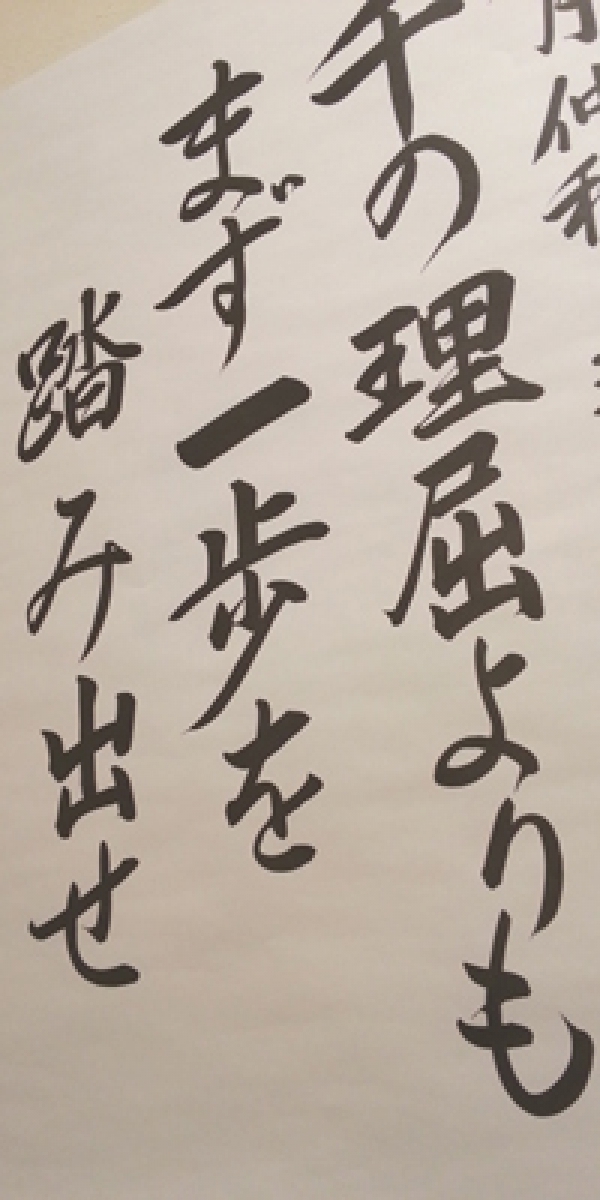 千の理屈よりも
まず一歩を
踏み出せ